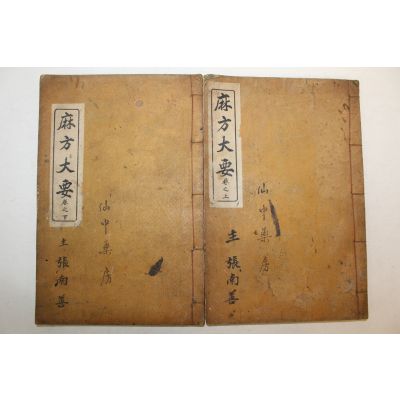 麻方大要 卷之上
仙中藥房
主 張南善
麻方大要 卷之下
仙中藥房
主 張南善